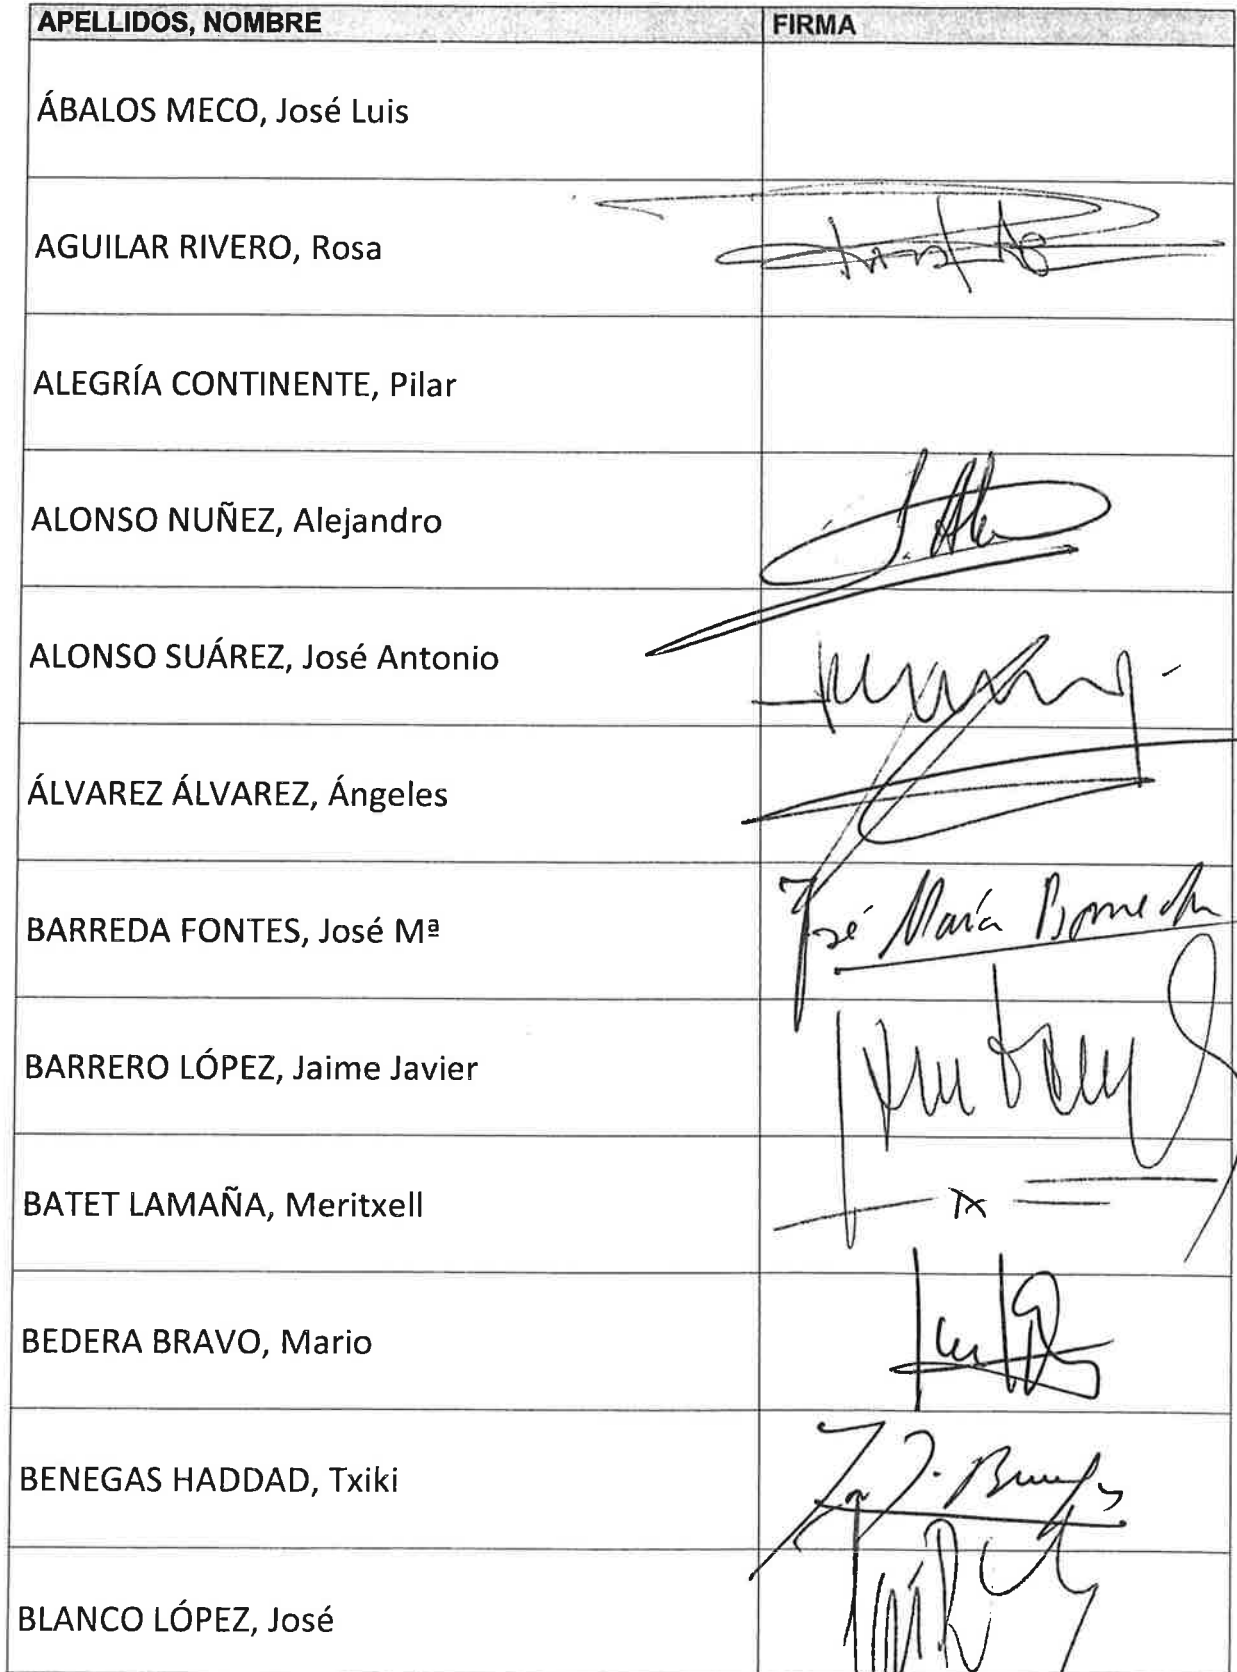 APELLIDOS, NOMBRE FIRMA
ÁBALOS MECO, José Luis
AGUILAR RIVERO, Rosa
ALEGRÍA CONTINENTE, Pilar
ALONSO NUÑEZ, Alejandro
ALONSO SUÁREZ, José Antonio
ÁLVAREZ ÁLVAREZ, Ángeles
BARREDA FONTES, José Mª José María Barreda
BARRERO LÓPEZ, Jaime Javier
BATET LAMAÑA, Meritxell
BEDERA BRAVO, Mario
BENEGAS HADDAD, Txiki
BLANCO LÓPEZ, José